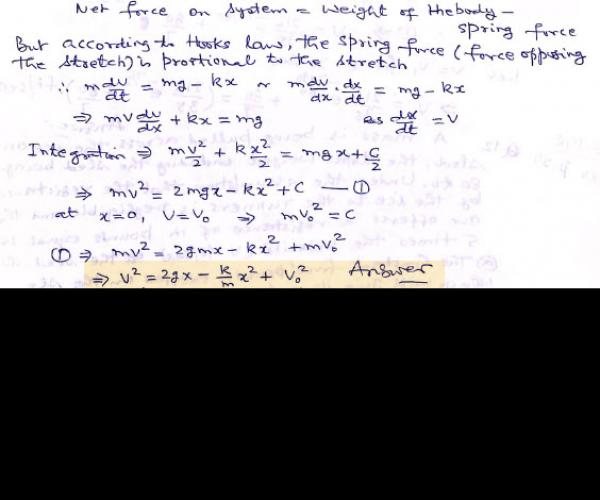 Net force on system = Weight of the body -
spring force
But according to Hooks law, the spring force (force opposing
the stretch) is prortional to the stretch
∴ m dv/dt = mg - kx or m dv/dx · dx/dt = mg - kx
⇒ mv dv/dx + kx = mg as dx/dt = v
Integration ⇒ m v²/2 + k x²/2 = mgx + c/2
⇒ mv² = 2mgx - kx² + C — ①
at x=0, V=V₀ ⇒ mv₀² = C
① ⇒ mv² = 2gmx - kx² + mv₀²
⇒ v² = 2gx - k/m x² + v₀² Answer